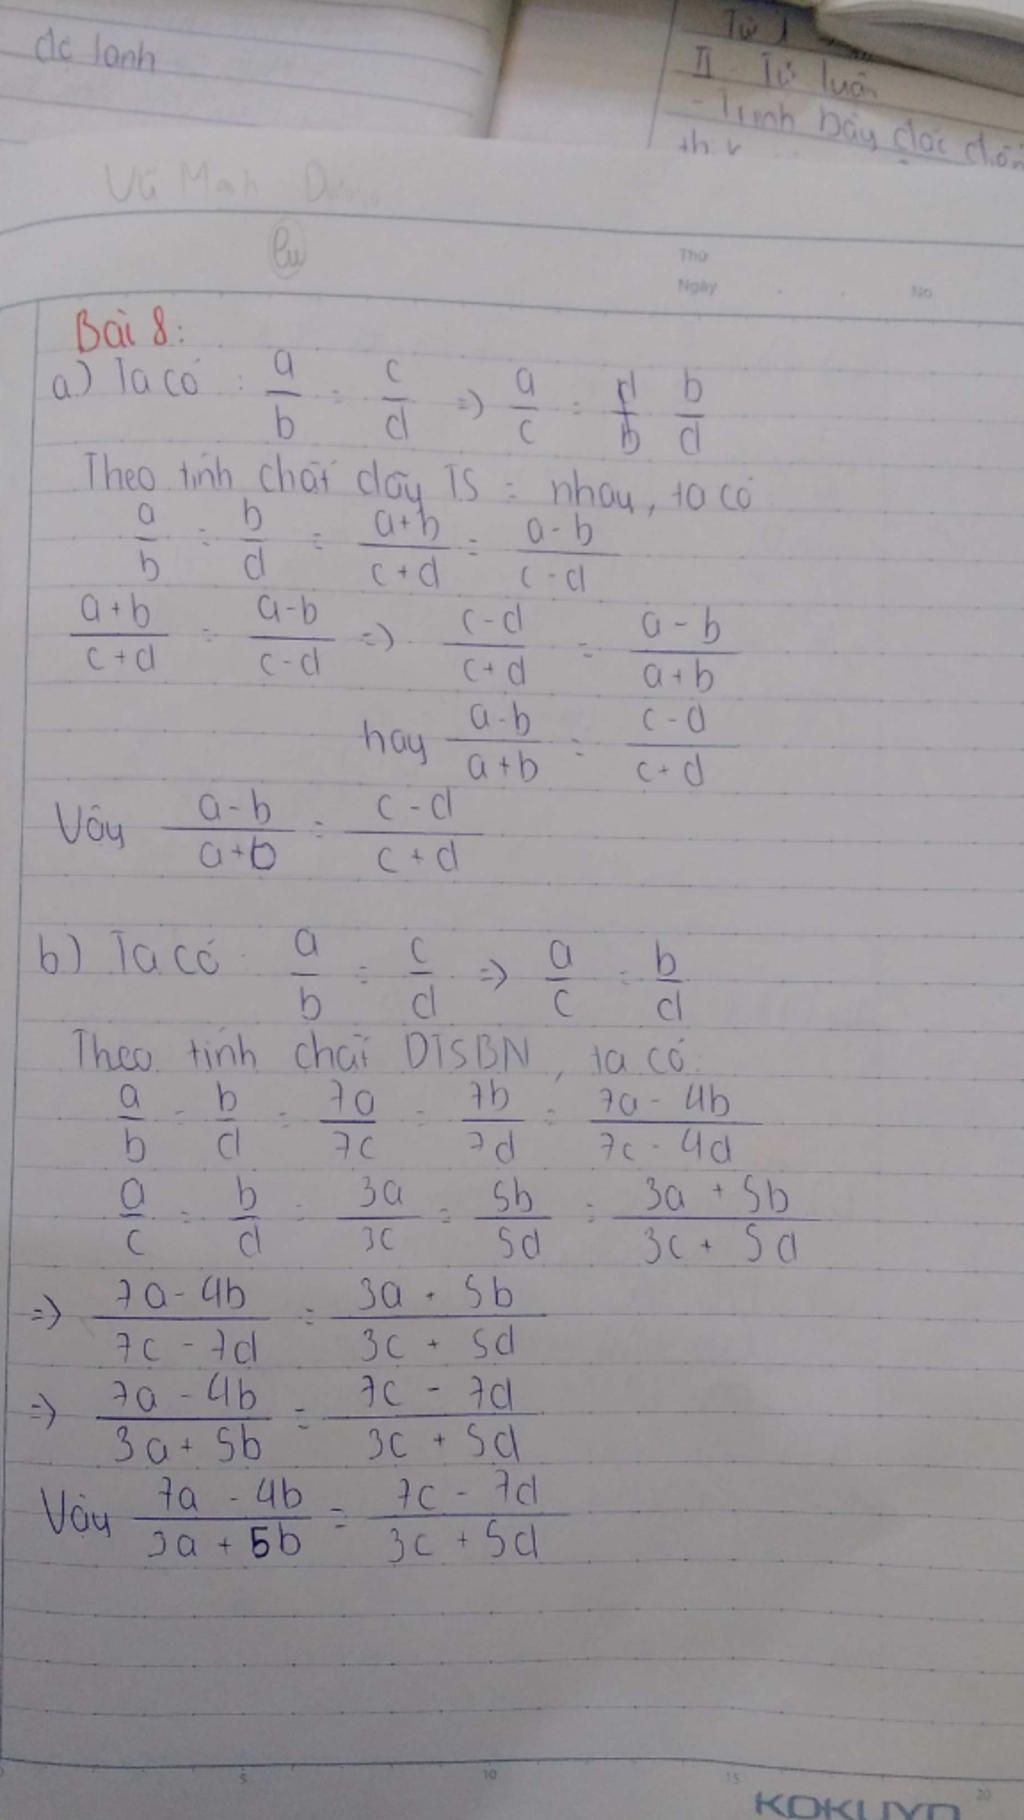 dc lanh
II - Tự luận
- Trình bày
Vũ Manh
Thứ
Ngày . . No
Bài 8:
a) Ta có : a/b = c/d => a/c = b/d
Theo tính chất dãy TS = nhau, ta có
a/b = b/d = a+b/c+d = a-b/c-d
a+b/c+d = a-b/c-d => c-d/c+d = a-b/a+b
hay a-b/a+b = c-d/c+d
Vậy a-b/a+b = c-d/c+d
b) Ta có a/b = c/d => a/c = b/d
Theo tính chất DTSBN, ta có:
a/b = b/d = 7a/7c = 7b/7d = 7a-4b/7c-4d
a/c = b/d = 3a/3c = 5b/5d = 3a+5b/3c+5d
=> 7a-4b/7c-7d = 3a+5b/3c+5d
=> 7a-4b/3a+5b = 7c-7d/3c+5d
Vậy 7a-4b/3a+5b = 7c-7d/3c+5d
5 10 15 20
KOKUYO